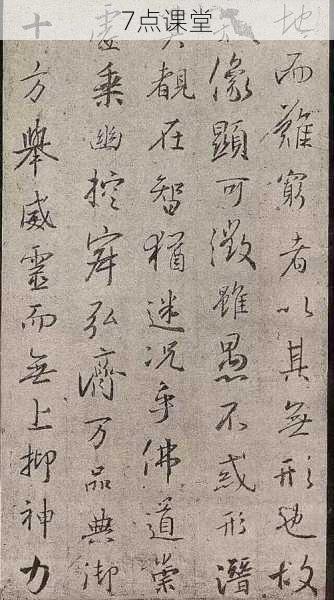 7点课堂
地而難窮者以其無形也故
像顯可徵雖愚不惑形潛
覩在智猶迷況乎佛道崇
虛乘幽控寂弘濟万品典御
十方舉威靈而無上抑神力